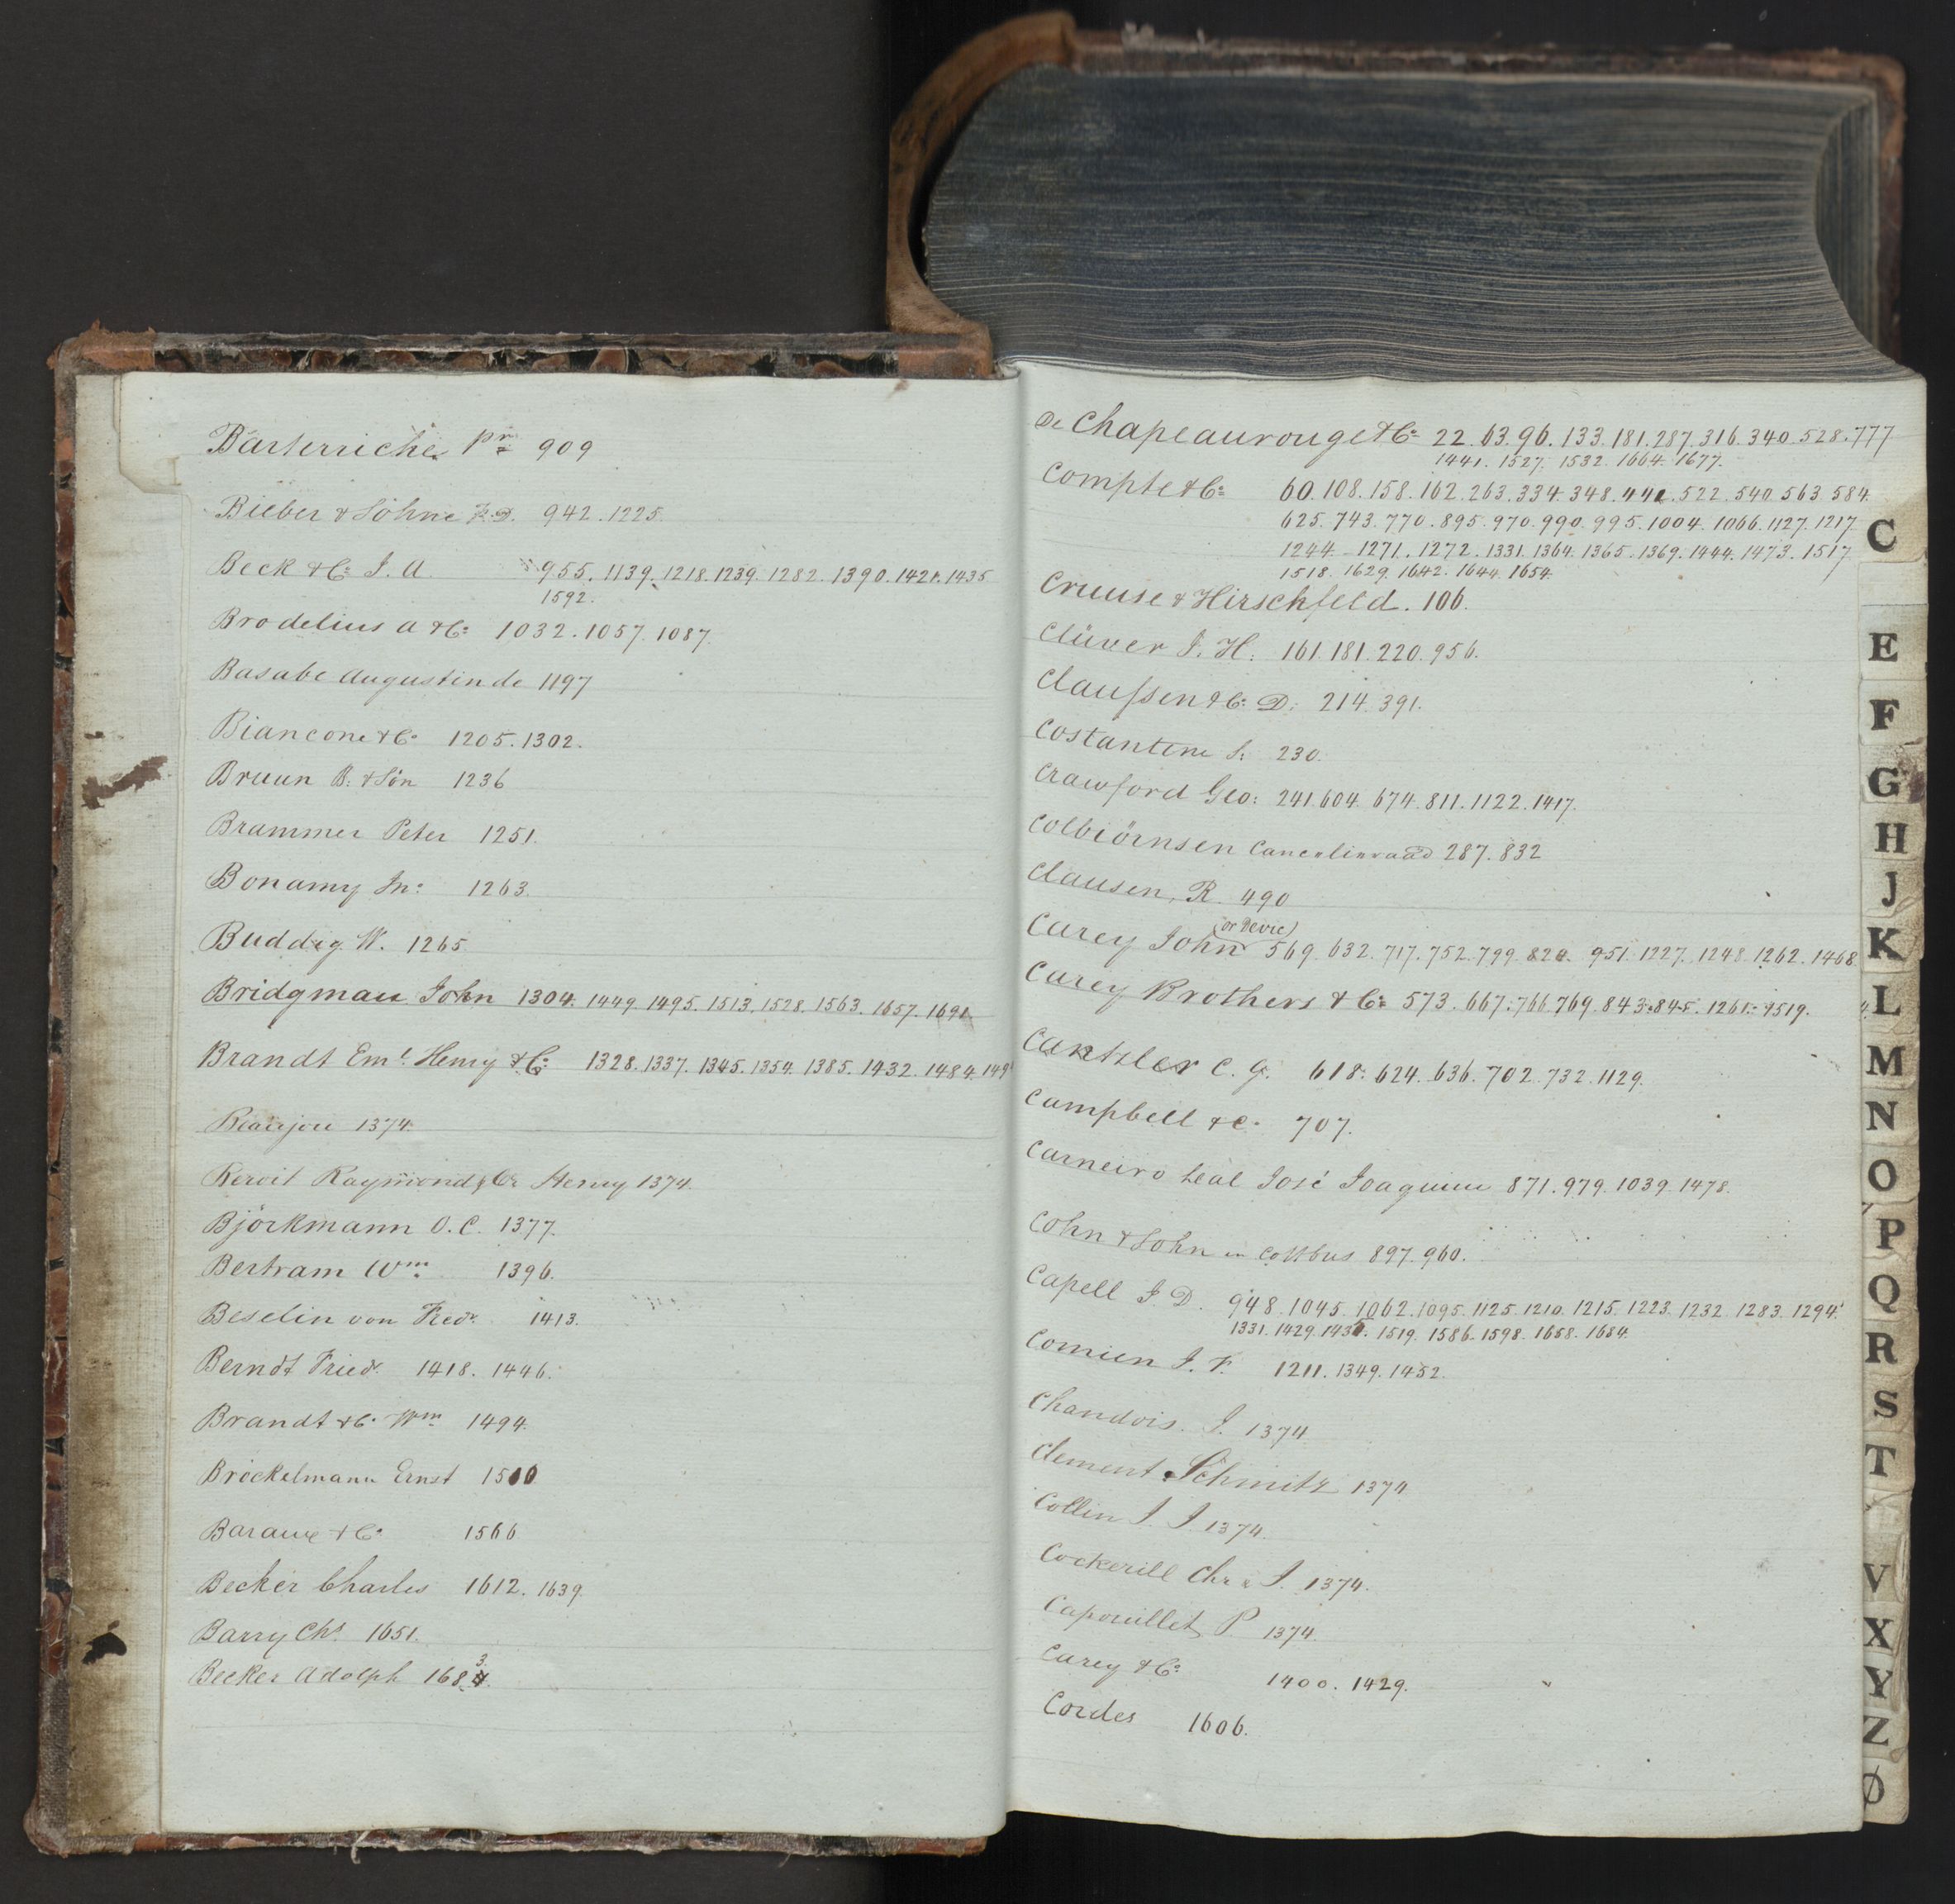 Barterriche Pr 909
Bieber & Söhne F.D. 942. 1225.
Beck & Co: I. A. 955. 1139. 1218. 1239. 1282. 1390. 1421. 1435
1592.
Brodelius A & Co: 1032. 1057. 1087.
Basabe Augustin de 1197
Biancone & Co 1205. 1302.
Bruun B: & Sön 1236
Brammer Peter 1251.
Bonamy Jn: 1263.
Buddig W. 1265
Bridgman John 1304. 1449. 1495. 1513. 1528. 1563. 1657. 1691.
Brandt Eml. Henry & Co: 1328. 1337. 1345. 1354. 1385. 1432. 1484. 149
Beaujou 1374.
Bervit Raymond & Co Henry 1374.
Björkmann O. C. 1377.
Bertram Wm. 1396.
Beselin von Fredr. 1413.
Berndt Friedr. 1418. 1446.
Brandt & Co. Wm 1494.
Bröckelmann Ernst 1510
1566
Becker Charles 1612. 1639.
Barry Chs. 1651.
3.
Becker Adolph 1684.
De Chapeaurouge & Co: 22. 63. 96. 133. 181. 287. 316. 340. 528. 777
1441. 1527. 1532. 1664. 1677.
Compte & Co: 60. 108. 158. 162. 263. 334. 348. 441. 522. 540. 563. 584.
625. 743. 770. 895. 970. 990. 995. 1004. 1066. 1127. 1217.
1244. 1271. 1272. 1331. 1364. 1365. 1369. 1444. 1473. 1517
1518. 1629. 1642. 1644. 1654.
Cruuse & Hirschfeld. 106.
Clüver J. H. 161. 181. 220. 956.
Claussen & Co: D: 214. 391.
Costantine S. 230.
Crawford Geo: 241. 604. 674. 811. 1122. 1417.
Colbiörnsen Cancelieraad 287. 832
Clausen, R. 490
(or Devic)
Carey John 569. 632. 717. 752. 799. 820. 951. 1227. 1248. 1262. 1468.
Carey Brothers & Co: 573. 667. 766. 769. 843. 845. 1261. 1519.
Cantzler C. G. 618. 624. 636. 702. 732. 1129.
Campbell & C. 707.
Carneiro Leal José Joaquim 871. 979. 1039. 1478.
Cohn & Sohn in Cottbus 897. 960.
Capell J. D. 948. 1045. 1062. 1095. 1125. 1210. 1215. 1223. 1232. 1283. 1294.
1331. 1429. 1431. 1519. 1586. 1598. 1658. 1684.
Comien J. F. 1211. 1349. 1452.
Chandois. J. 1374
Clement Schmitz 1374
Collin J. J. 1374.
Cockerill Chr & J. 1374.
Capouillet P 1374.
Carey & Co: 1400. 1429.
Cordes 1606.
C
E
F
G
H
J
K
L
M
N
O
P
Q
R
S
T
V
X
Y
Z
Ø